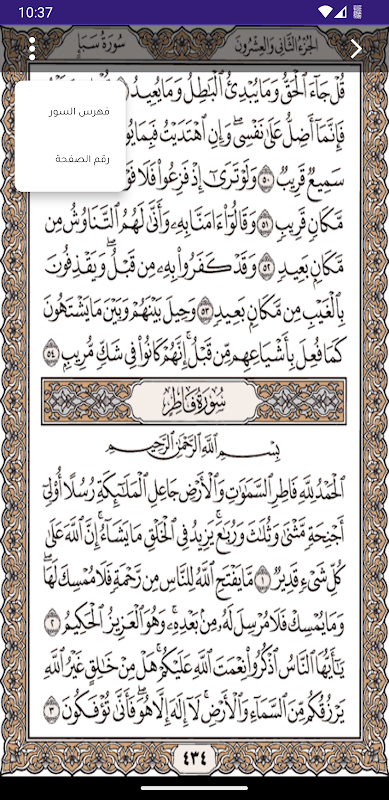 10:37
سُورَةُ سَبَإٍ
الجُزْءُ الثَّانِي وَالعِشْرُونَ
فهرس السور
رقم الصفحة
قُلْ جَآءَ ٱلْحَقُّ وَمَا يُبْدِئُ ٱلْبَٰطِلُ وَمَا يُعِيدُ
فَإِنَّمَآ أَضِلُّ عَلَىٰ نَفْسِى وَإِنِ ٱهْتَدَيْتُ فَبِمَا
سَمِيعٌ قَرِيبٌ ٥٠ وَلَوْ تَرَىٰٓ إِذْ فَزِعُوا۟ فَلَا
مَّكَانٍ قَرِيبٍ ٥١ وَقَالُوٓا۟ ءَامَنَّا بِهِۦ وَأَنَّىٰ لَهُمُ ٱلتَّنَاوُشُ مِن
مَّكَانٍۭ بَعِيدٍ ٥٢ وَقَدْ كَفَرُوا۟ بِهِۦ مِن قَبْلُ ۖ وَيَقْذِفُونَ
بِٱلْغَيْبِ مِن مَّكَانٍۭ بَعِيدٍ ٥٣ وَحِيلَ بَيْنَهُمْ وَبَيْنَ مَا يَشْتَهُونَ
كَمَا فُعِلَ بِأَشْيَاعِهِم مِّن قَبْلُ ۚ إِنَّهُمْ كَانُوا۟ فِى شَكٍّ مُّرِيبٍۭ ٥٤
سُورَةُ فَاطِرٍ
بِسْمِ ٱللَّهِ ٱلرَّحْمَٰنِ ٱلرَّحِيمِ
ٱلْحَمْدُ لِلَّهِ فَاطِرِ ٱلسَّمَٰوَٰتِ وَٱلْأَرْضِ جَاعِلِ ٱلْمَلَٰٓئِكَةِ رُسُلًا أُو۟لِىٓ
أَجْنِحَةٍ مَّثْنَىٰ وَثُلَٰثَ وَرُبَٰعَ ۚ يَزِيدُ فِى ٱلْخَلْقِ مَا يَشَآءُ ۚ إِنَّ ٱللَّهَ عَلَىٰ
كُلِّ شَىْءٍ قَدِيرٌ ١ مَّا يَفْتَحِ ٱللَّهُ لِلنَّاسِ مِن رَّحْمَةٍ فَلَا مُمْسِكَ لَهَا ۖ
وَمَا يُمْسِكْ فَلَا مُرْسِلَ لَهُۥ مِنۢ بَعْدِهِۦ ۚ وَهُوَ ٱلْعَزِيزُ ٱلْحَكِيمُ ٢
يَٰٓأَيُّهَا ٱلنَّاسُ ٱذْكُرُوا۟ نِعْمَتَ ٱللَّهِ عَلَيْكُمْ ۚ هَلْ مِنْ خَٰلِقٍ غَيْرُ ٱللَّهِ
يَرْزُقُكُم مِّنَ ٱلسَّمَآءِ وَٱلْأَرْضِ ۚ لَآ إِلَٰهَ إِلَّا هُوَ ۖ فَأَنَّىٰ تُؤْفَكُونَ ٣
٤٣٤